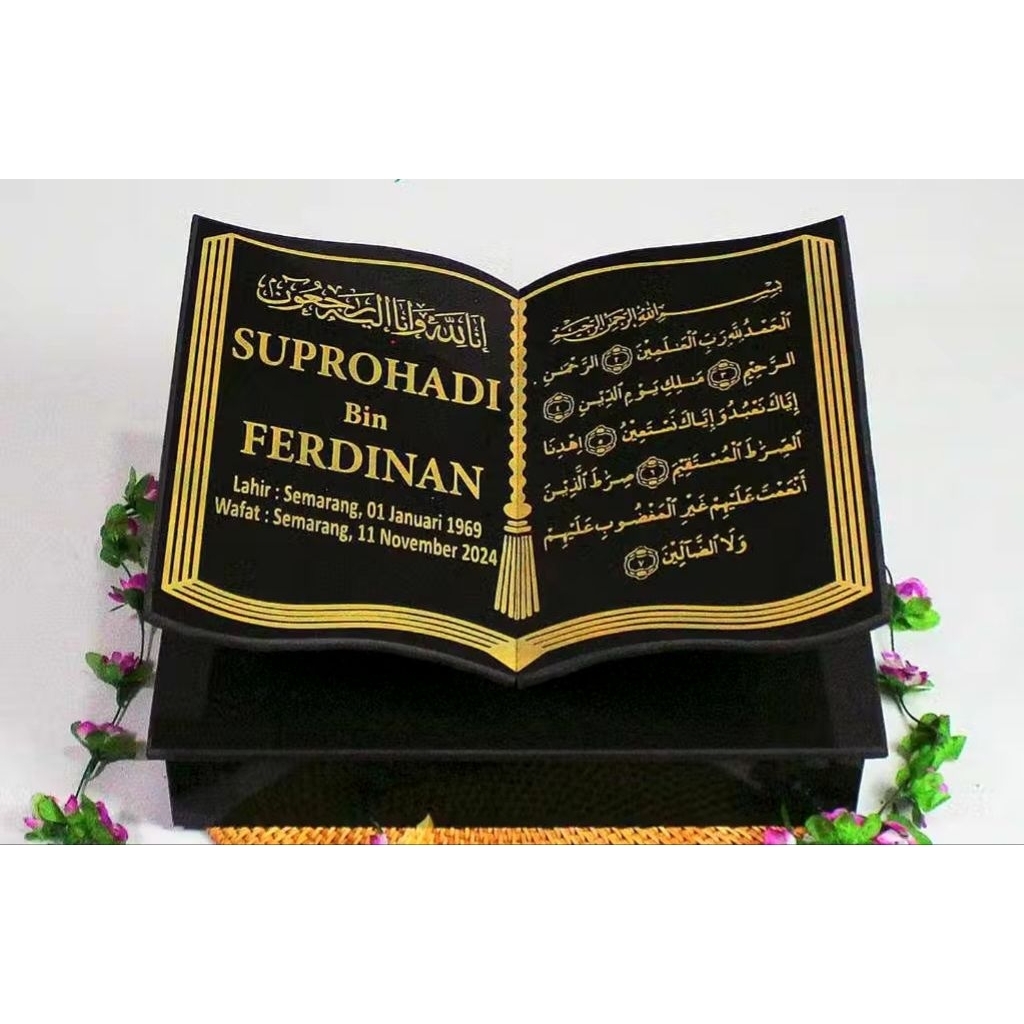 إنا لله وإنا إليه راجعون
SUPROHADI
Bin
FERDINAN
Lahir : Semarang, 01 Januari 1969
Wafat : Semarang, 11 November 2024
بسم الله الرحمن الرحيم
ٱلْحَمْدُ لِلَّهِ رَبِّ ٱلْعَـٰلَمِينَ ٢ ٱلرَّحْمَـٰنِ
ٱلرَّحِيمِ ٣ مَـٰلِكِ يَوْمِ ٱلدِّينِ ٤
إِيَّاكَ نَعْبُدُ وَإِيَّاكَ نَسْتَعِينُ ٥ ٱهْدِنَا
ٱلصِّرَٰطَ ٱلْمُسْتَقِيمَ ٦ صِرَٰطَ ٱلَّذِينَ
أَنْعَمْتَ عَلَيْهِمْ غَيْرِ ٱلْمَغْضُوبِ عَلَيْهِمْ
وَلَا ٱلضَّآلِّينَ ٧